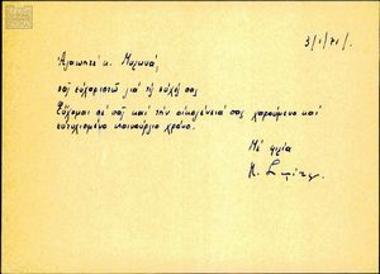 3/1/71.
Ἀγαπητέ κ. Μυλωνᾶ,
σᾶς εὐχαριστῶ γιά τίς εὐχές σας
Εὔχομαι σέ σᾶς καί τήν οἰκογένειά σας χαρούμενο καί
εὐτυχισμένο καινούργιο χρόνο.
Μέ φιλία
Κ.